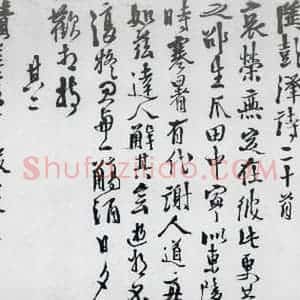 陶彭澤詩二十首
衰榮無定在彼此更共
之邵生瓜田中寧似東陵
時寒暑有代謝人道每
如茲達人解其會逝將不
復疑忽與一觴酒日夕
歡相持
其二
Shufaziliao.COM